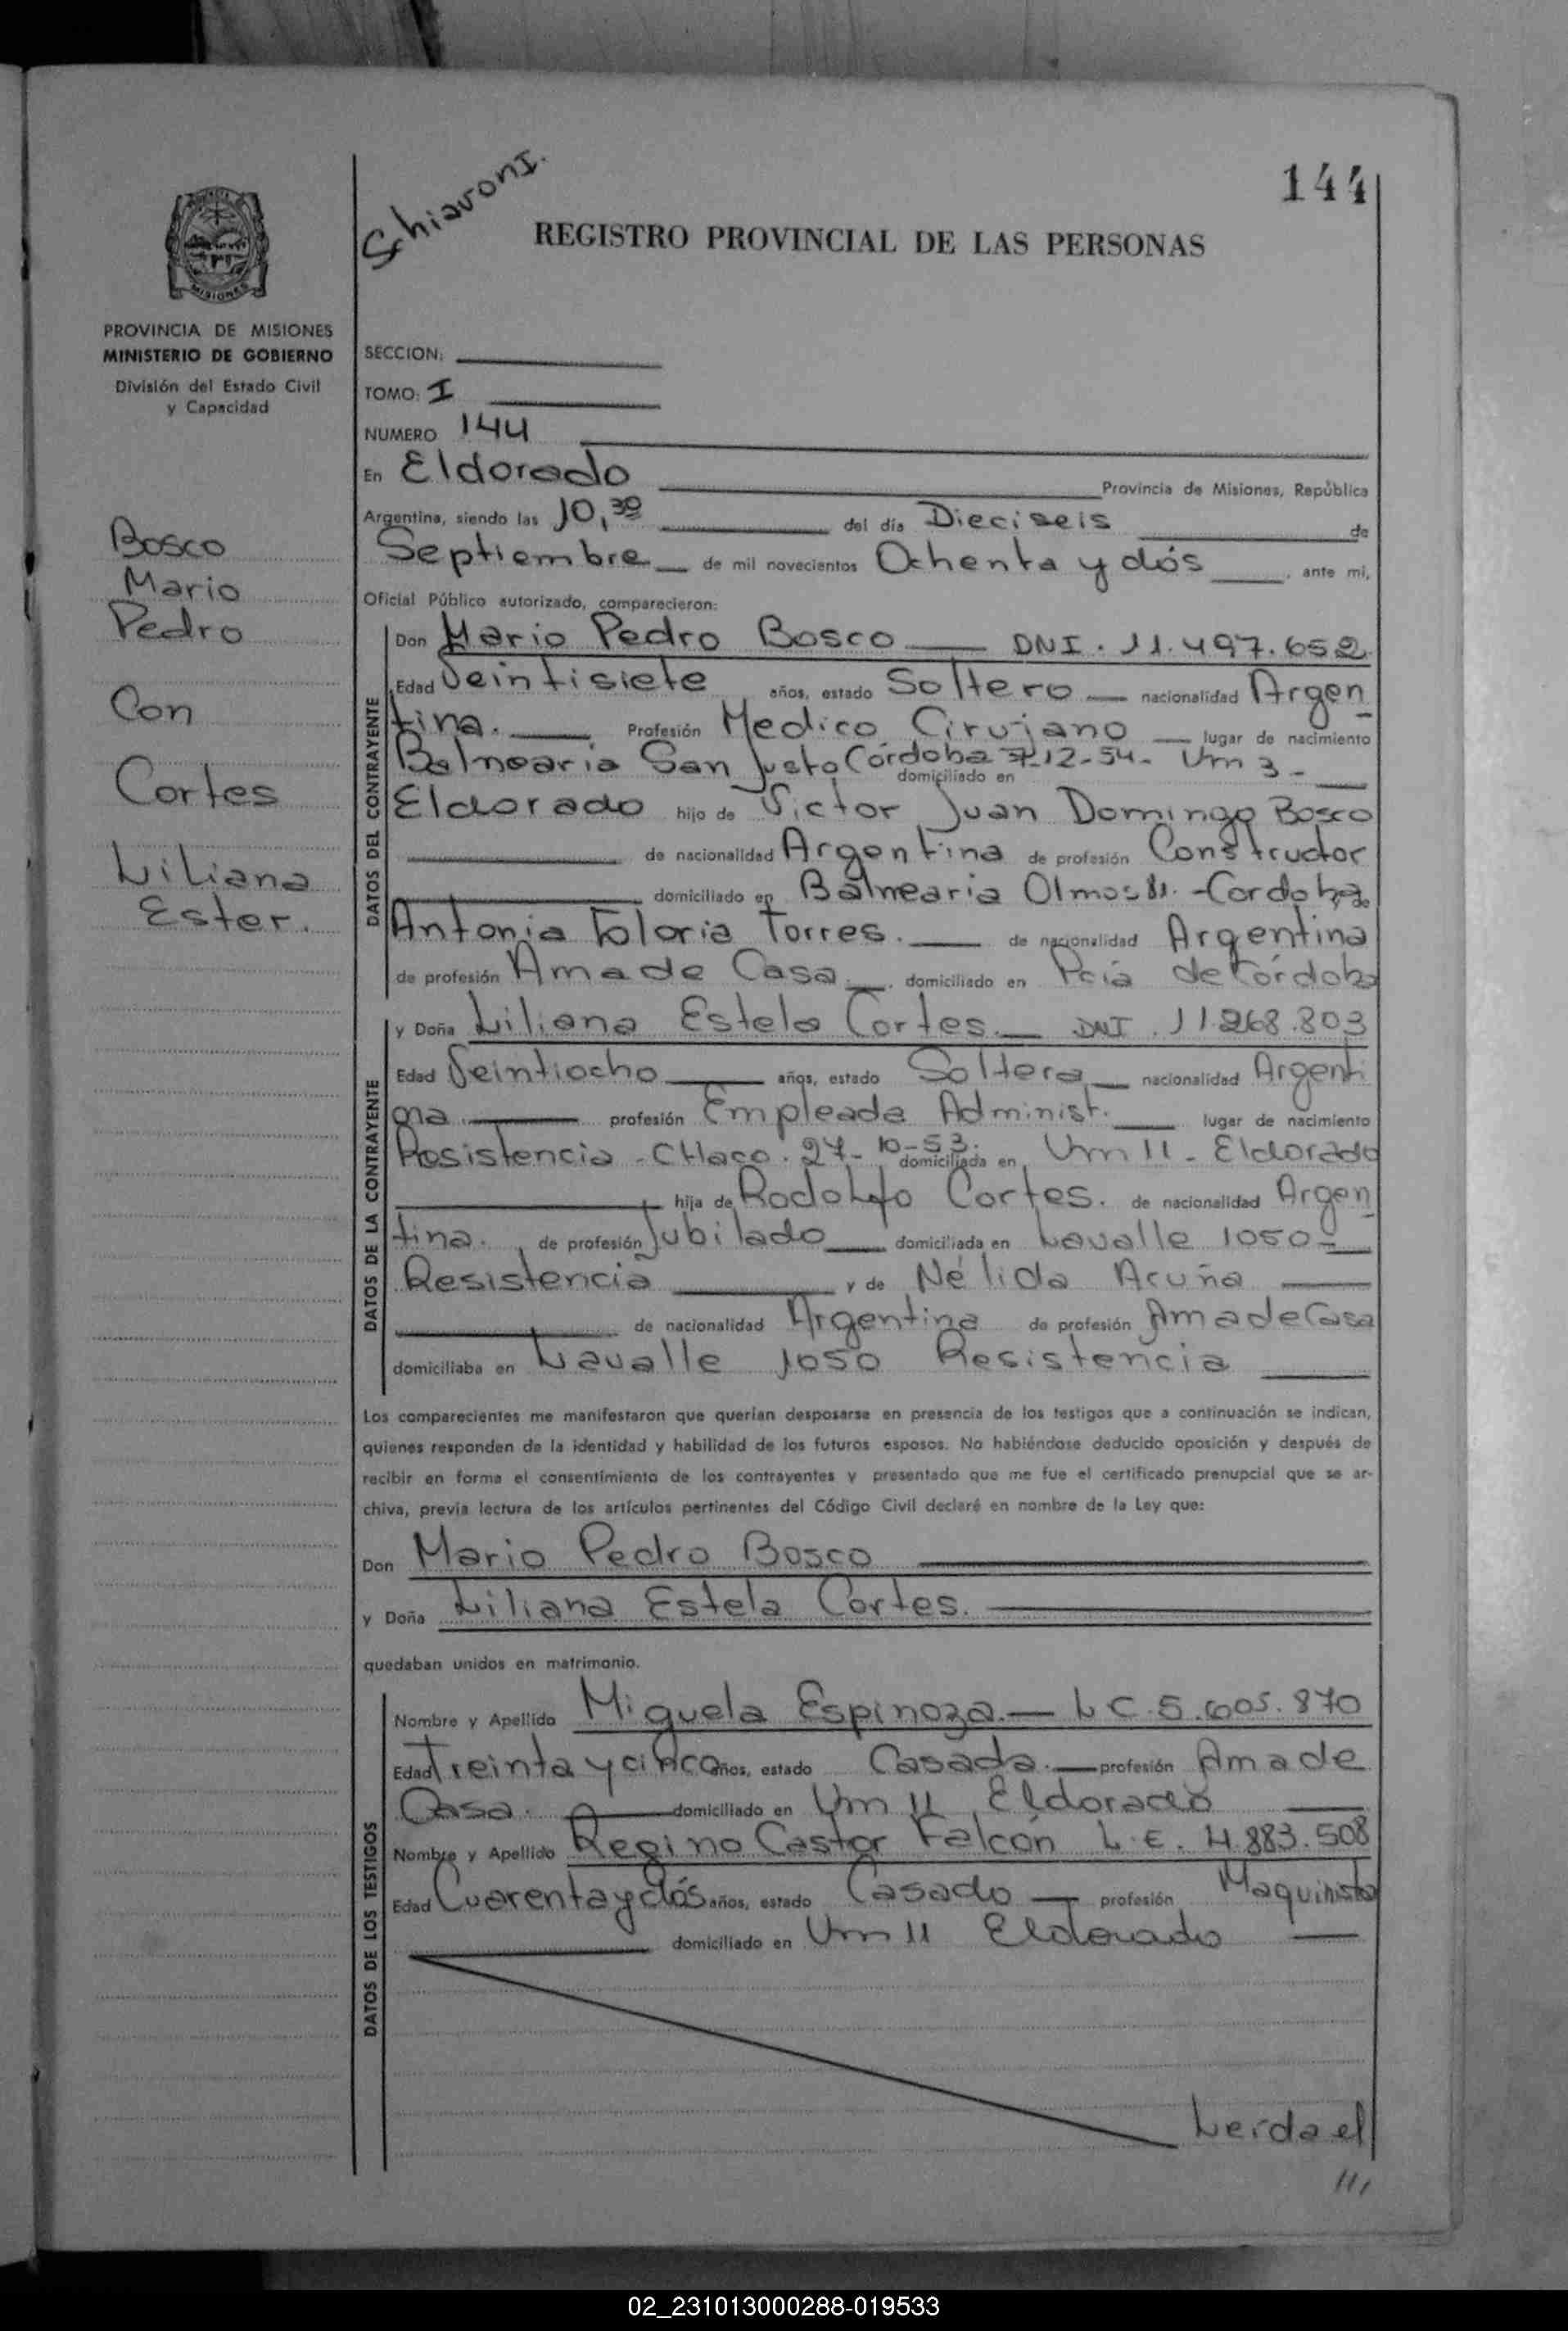 Schiavoni.
144
REGISTRO PROVINCIAL DE LAS PERSONAS
MISIONES
PROVINCIA DE MISIONES
MINISTERIO DE GOBIERNO
División del Estado Civil
y Capacidad
Bosco
Mario
Pedro
Con
Cortes
Liliana
Ester.
SECCION:
TOMO: I
NUMERO 144
En Eldorado Provincia de Misiones, República
Argentina, siendo las 10,30 del día Dieciseis de
Septiembre de mil novecientos Ochenta y dós, ante mi,
Oficial Público autorizado, comparecieron:
DATOS DEL CONTRAYENTE
Don Mario Pedro Bosco DNI. 11.497.652
Edad Veintisiete años, estado Soltero nacionalidad Argen
tina. Profesión Medico Cirujano lugar de nacimiento
Balnearia San Justo Córdoba 7-12-54- domiciliado en Km 3-
Eldorado hijo de Victor Juan Domingo Bosco
de nacionalidad Argentina de profesión Constructor
domiciliado en Balnearia Olmos 81.-Cordoba
Antonia Toloria Torres. de nacionalidad Argentina
de profesión Ama de Casa. domiciliado en Pcia de Córdoba
DATOS DE LA CONTRAYENTE
y Doña Liliana Estela Cortes. DNI. 11.268.803
Edad Veintiocho años, estado Soltera nacionalidad Argenti
na profesión Empleada Administ. lugar de nacimiento
Resistencia - CHaco. 27-10-53. domiciliada en Km 11 - Eldorado
hija de Rodolfo Cortes. de nacionalidad Argen
tina. de profesión Jubilado domiciliada en Lavalle 1050-
Resistencia y de Nélida Acuña
de nacionalidad Argentina de profesión Ama de Casa
domiciliaba en Lavalle 1050 Resistencia
Los comparecientes me manifestaron que querían desposarse en presencia de los testigos que a continuación se indican,
quienes responden de la identidad y habilidad de los futuros esposos. No habiéndose deducido oposición y después de
recibir en forma el consentimiento de los contrayentes y presentado que me fue el certificado prenupcial que se ar-
chiva, previa lectura de los artículos pertinentes del Código Civil declaré en nombre de la Ley que:
Don Mario Pedro Bosco
y Doña Liliana Estela Cortes.
quedaban unidos en matrimonio.
DATOS DE LOS TESTIGOS
Nombre y Apellido Miguela Espinoza.- L C. 5.605.870
Edad Treinta y cinco años, estado Casada. profesión Ama de
Casa. domiciliado en Km 11 Eldorado
Nombre y Apellido Regino Castor Falcón L.E. 4.883.508
Edad Cuarenta y dós años, estado Casado profesión Maquinista
domiciliado en Km 11 Eldorado
Leída el
///
02_231013000288-019533